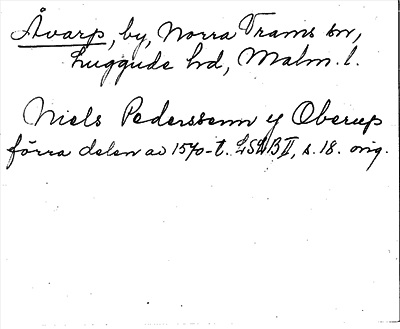 Åvarp, by, Norra Vrams sn,
Luggude hd, Malm. l.
Niels Pederssenn y Oberup
förra delen av 1570-t. LSLB II, s. 18. orig.